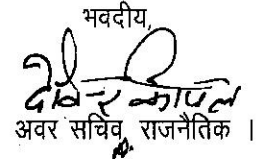 भवदीय,
अवर सचिव, राजनैतिक ।